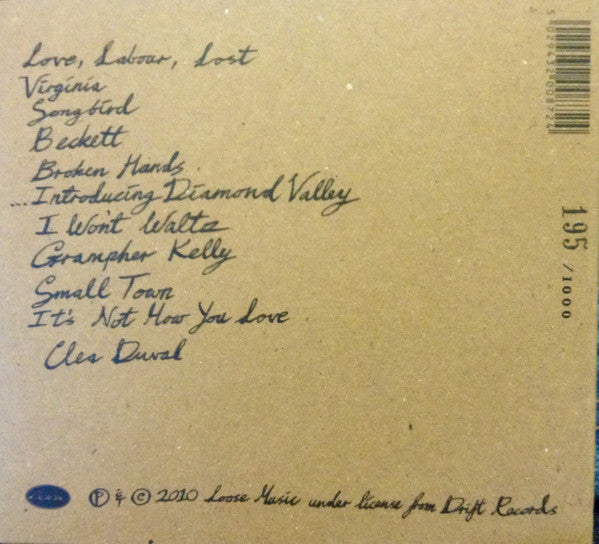 Love, Labour, Lost
Virginia
Songbird
Beckett
Broken Hands
...Introducing Diamond Valley
I Won't Waltz
Grampher Kelly
Small Town
It's Not How You Love
Clea Duval
℗ & © 2010 Loose Music under license from Drift Records
5 029432 008724
195 /1000